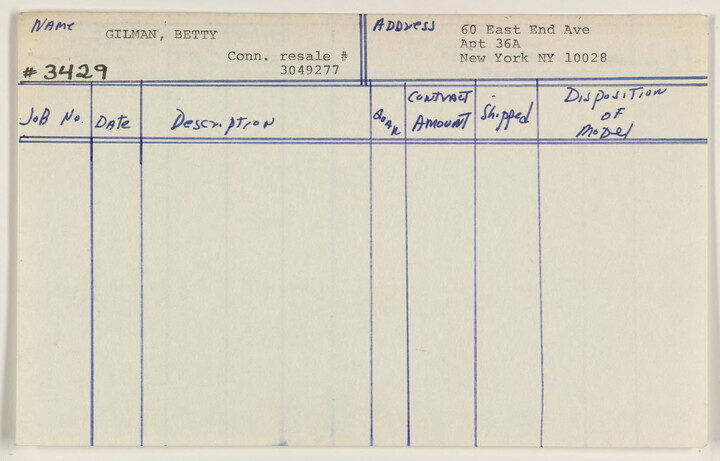 NAME
GILMAN, BETTY
Conn. resale #
3049277
#3429
ADDRESS
60 East End Ave
Apt 36A
New York NY 10028
JOB No.
DATE
Description
QUAN
CONTRACT
AMOUNT
Shipped
DISPOSITION
OF
MODEL